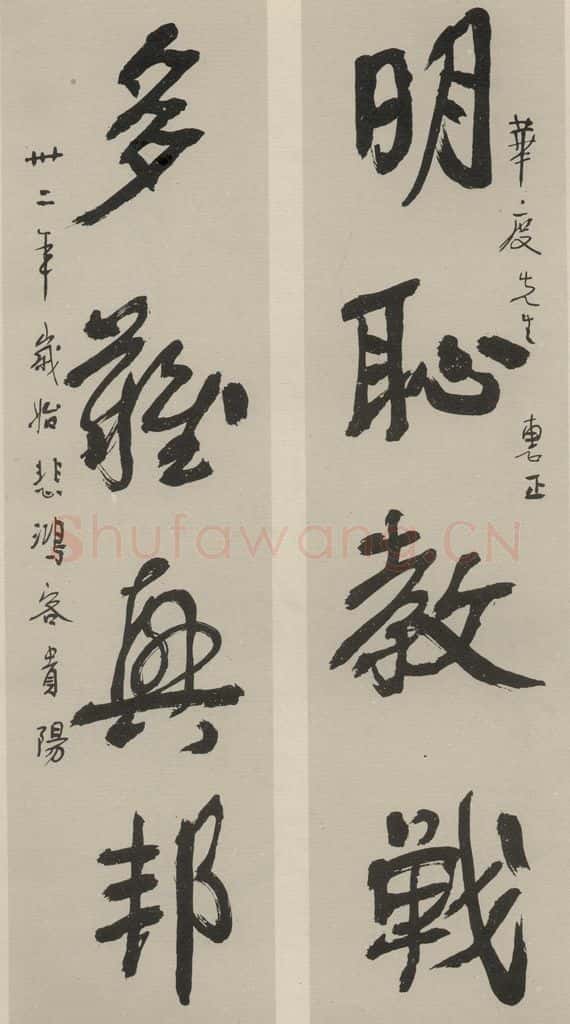 華度先生 惠正
明恥教戰
多難興邦
卅二年歲始悲鴻客貴陽
Shufawang.CN